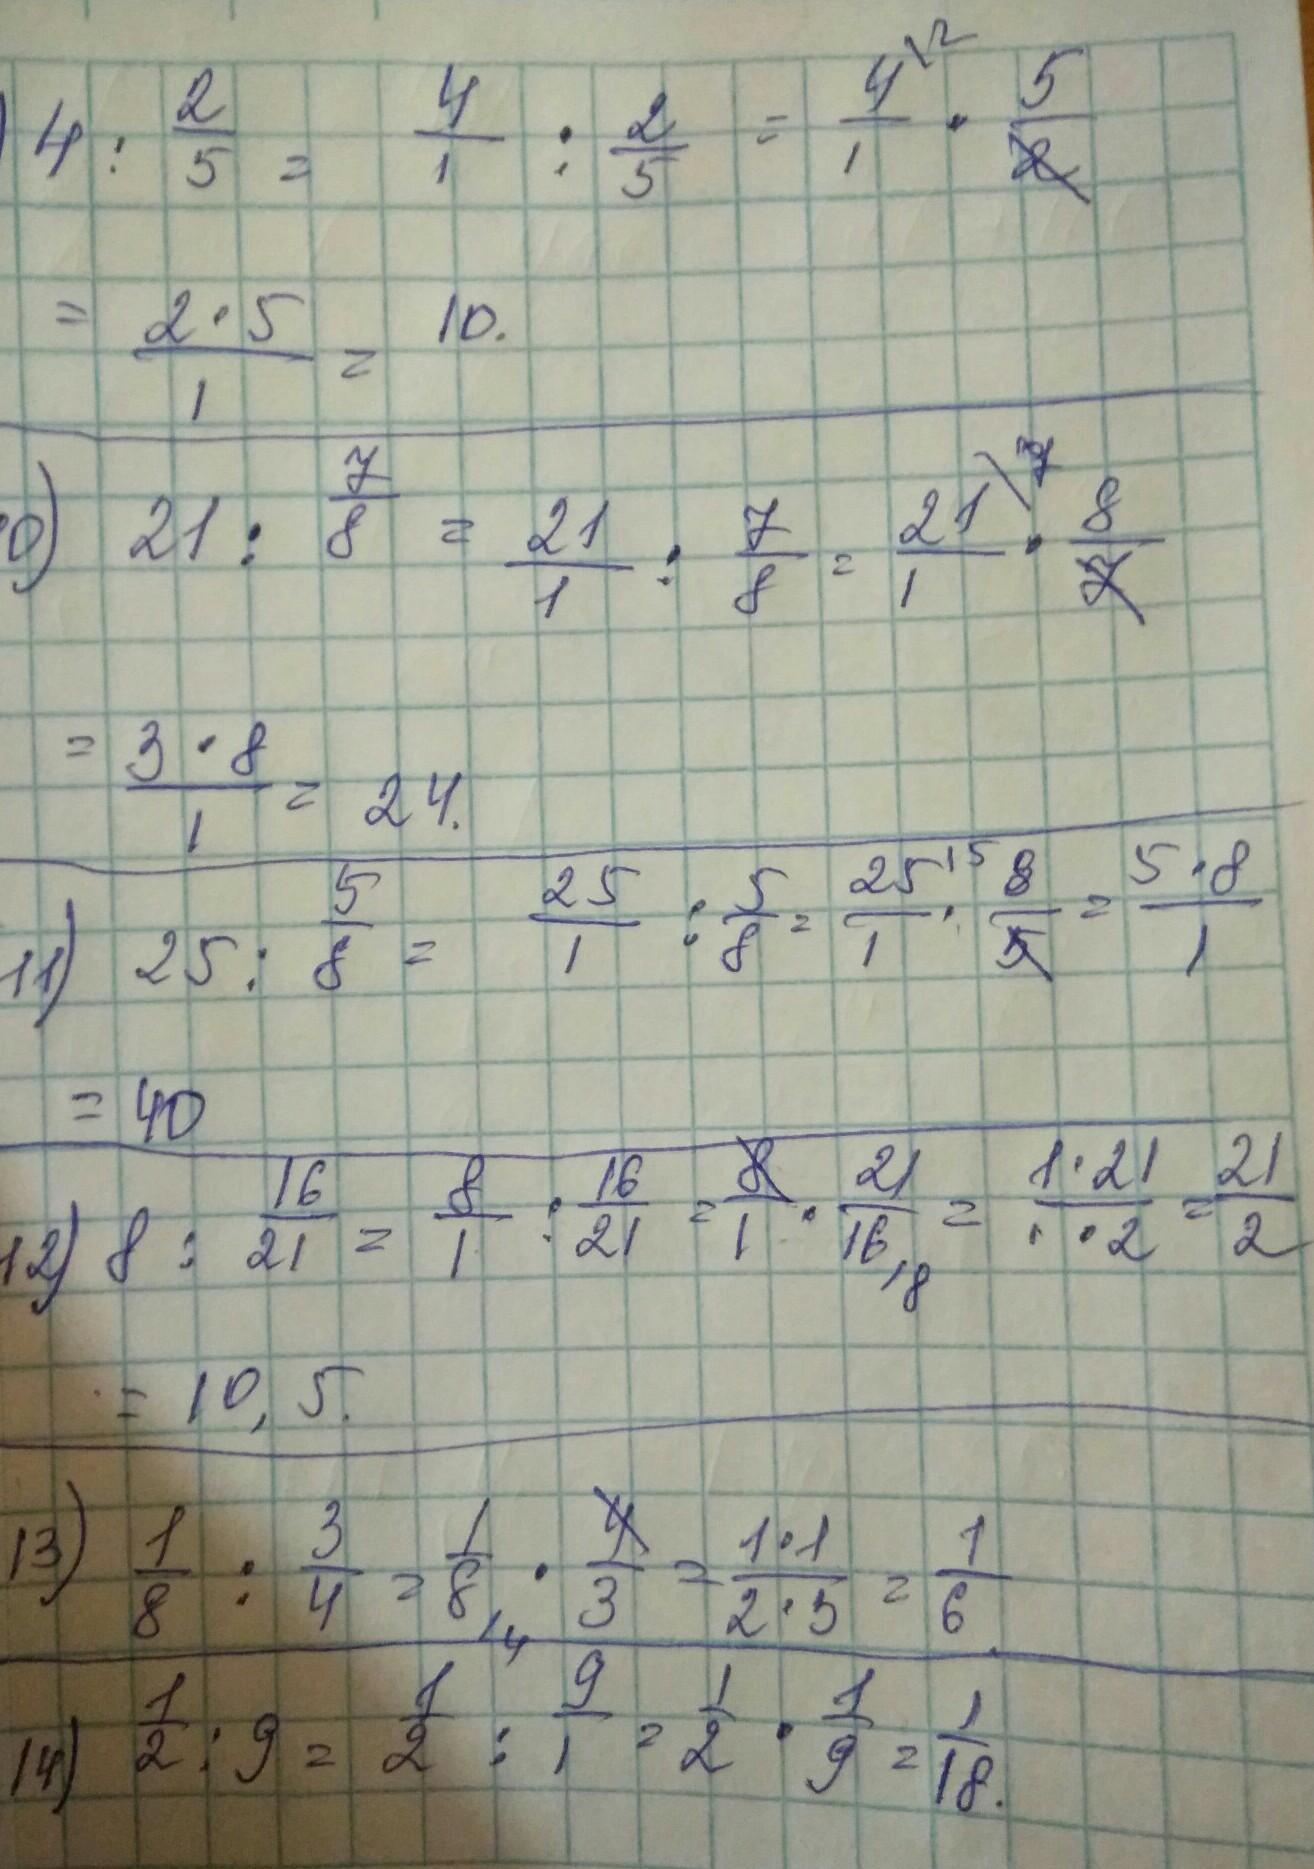 ) 4 : 2/5 = 4/1 : 2/5 = 4/1 \2 · 5/2
= 2·5/1 = 10.
0) 21 : 7/8 = 21/1 : 7/8 = 21/1 \7 · 8/7
= 3·8/1 = 24.
11) 25 : 5/8 = 25/1 : 5/8 = 25/1 \5 · 8/5 = 5·8/1
= 40
12) 8 : 16/21 = 8/1 : 16/21 = 8/1 · 21/16 /8 = 1·21/1·2 = 21/2
= 10,5.
13) 1/8 : 3/4 = 1/8 /4 · 4/3 = 1·1/2·3 = 1/6
14) 1/2 : 9 = 1/2 : 9/1 = 1/2 · 1/9 = 1/18.